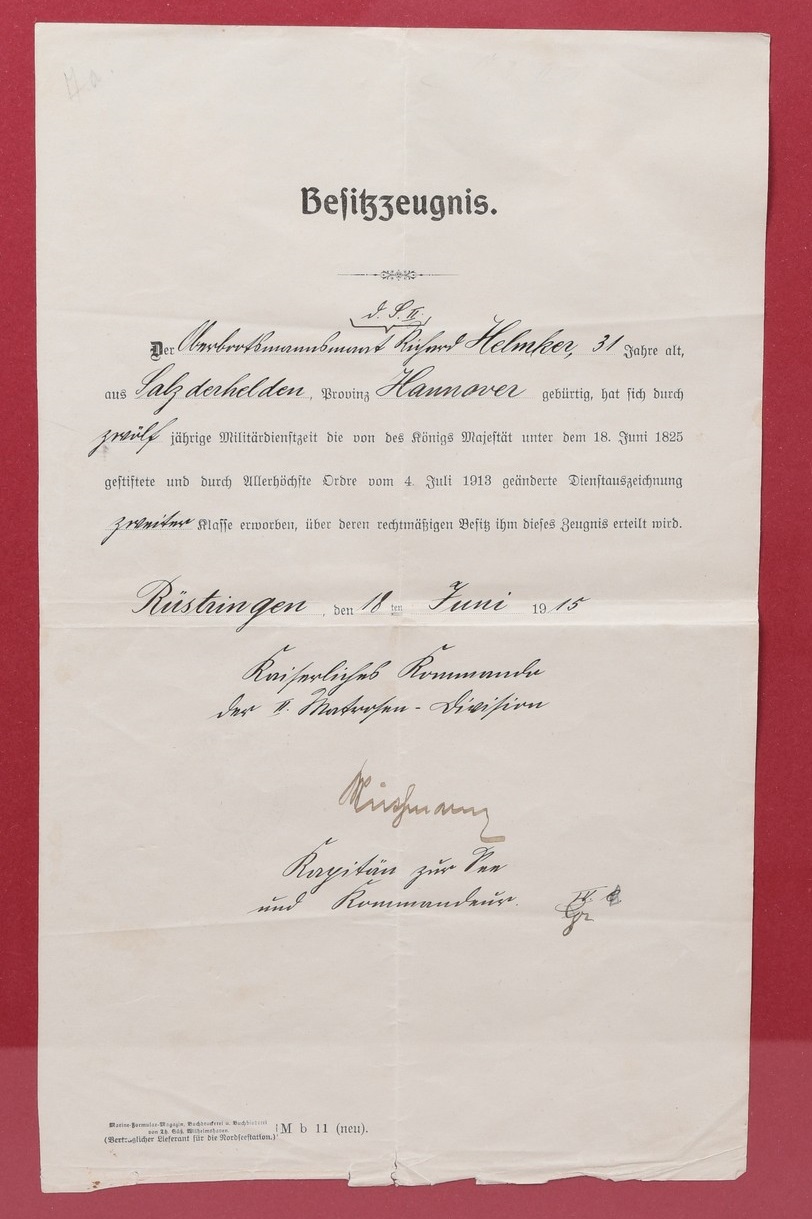 Besitzzeugnis.
d. S. II.
Der Oberbootsmannsmaat Richard Helmker, 31 Jahre alt,
aus Salzderhelden, Provinz Hannover gebürtig, hat sich durch
zwölf jährige Militärdienstzeit die von des Königs Majestät unter dem 18. Juni 1825
gestiftete und durch Allerhöchste Ordre vom 4. Juli 1913 geänderte Dienstauszeichnung
zweiter Klasse erworben, über deren rechtmäßigen Besitz ihm dieses Zeugnis erteilt wird.
Rüstringen, den 18 ten Juni 1915
Kaiserliches Kommando
der II. Matrosen-Division
Kapitän zur See
und Kommandeur.
Marine-Formular-Magazin, Buchdruckerei u. Buchbinderei
von Th. Süß, Wilhelmshaven.
(Vertraglicher Lieferant für die Nordseestation.)
M b 11 (neu).